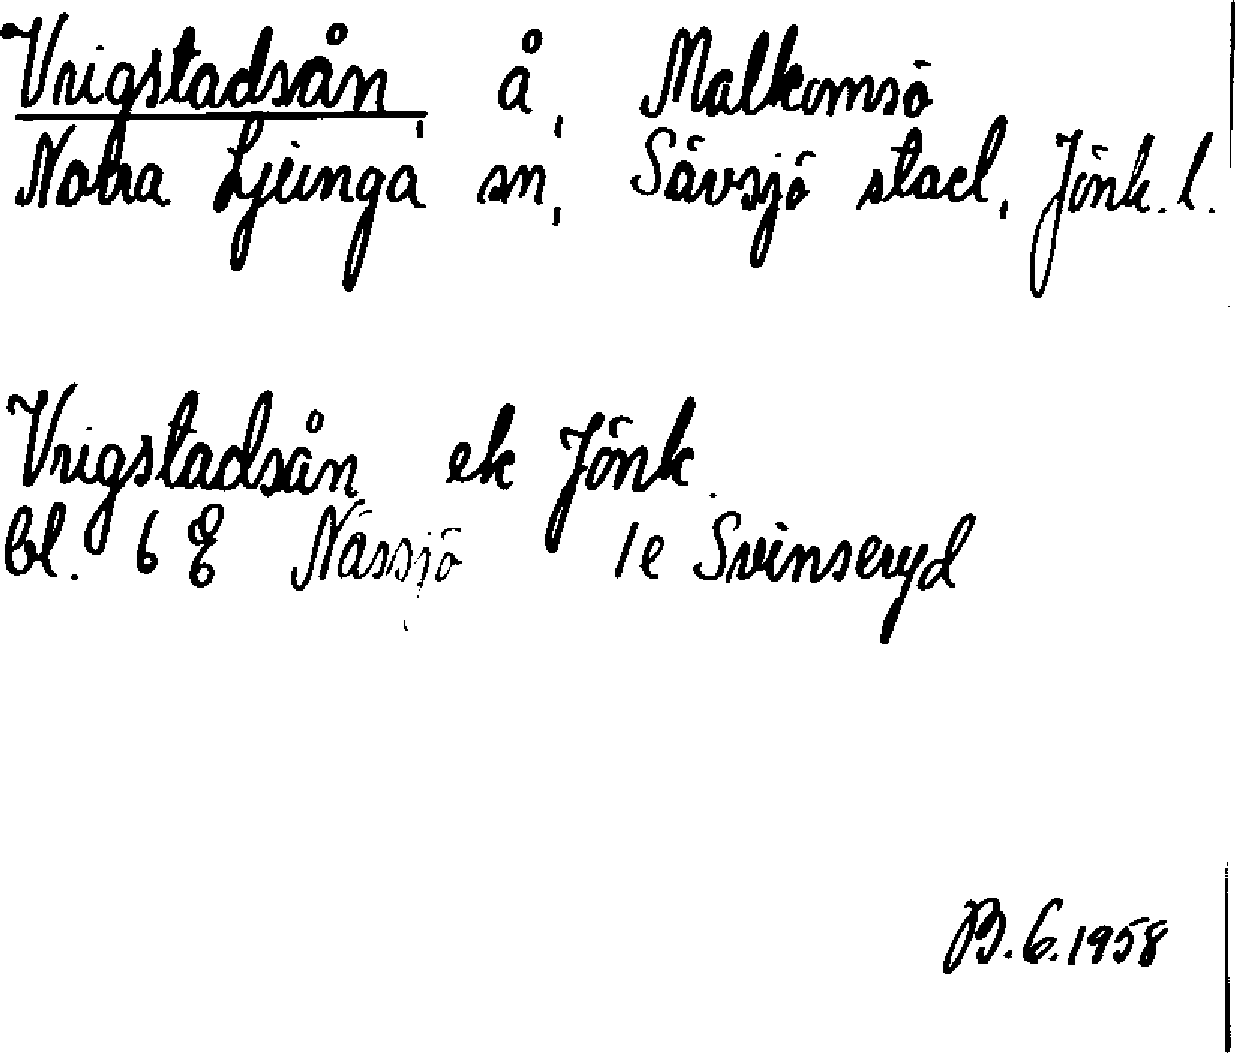 Vrigstadsån, å, Malkomsö
Norra Ljunga sn, Sävsjö stad, Jönk. l.
Vrigstadsån ek Jönk.
bl. 6 E Nässjö 1e Svinseryd
B.G. 1958